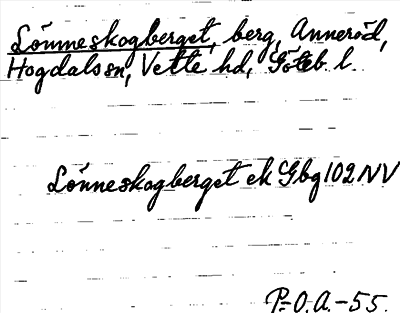 Lönneskogberget, berg, Anneröd,
Hogdals sn, Vette hd, Göteb. l.
Lönneskogberget ek Gbg 102 NV
P.-O.A.-55.